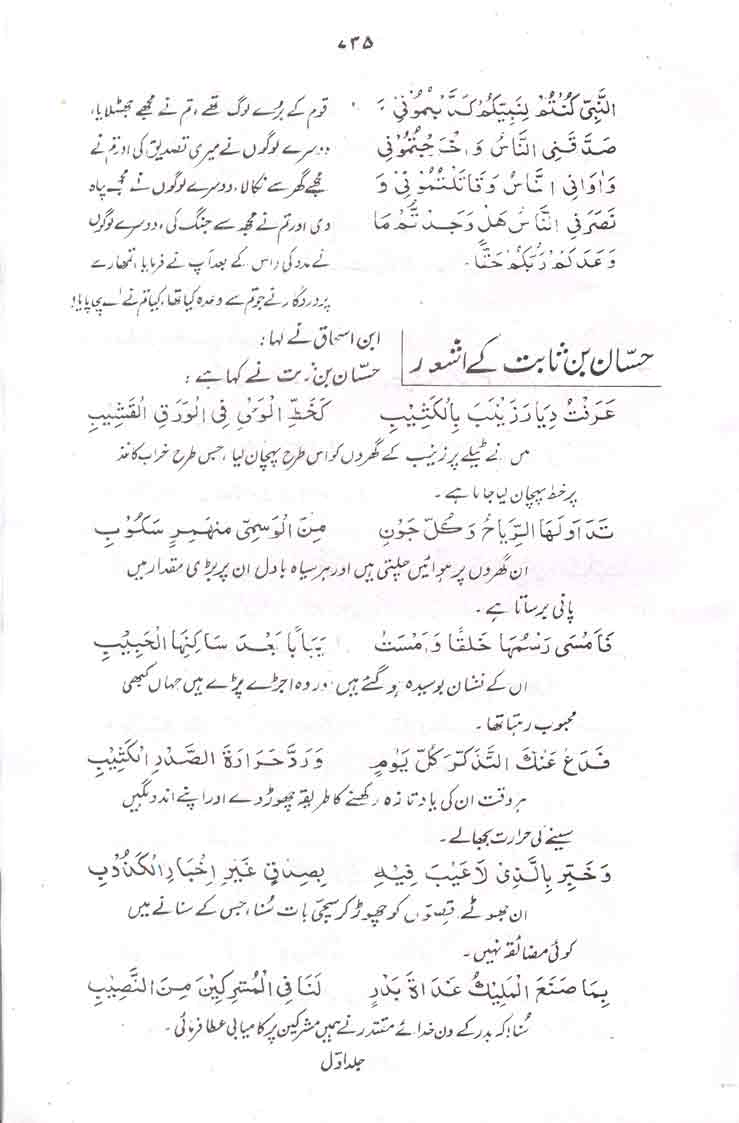 ۷۳۵
النَّبِيِّ كُنْتُمْ لِنَبِيِّكُمْ كَذَّبْتُمُوْنِيْ قوم کے بُرے لوگ تھے، تم نے مجھے جھٹلایا،
صَدَّقَنِي النَّاسُ وَاَخْرَجْتُمُوْنِيْ دوسرے لوگوں نے میری تصدیق کی اور تم نے
وَاٰوَانِي النَّاسُ وَقَاتَلْتُمُوْنِيْ وَ مجھے گھر سے نکالا، دوسرے لوگوں نے مجھے پناہ
نَصَرَنِي النَّاسُ هَلْ وَجَدْتُّمْ مَا دی اور تم نے مجھ سے جنگ کی، دوسرے لوگوں
وَعَدَكُمْ رَبُّكُمْ حَقًّا۔ نے مدد کی، اس کے بعد آپ نے فرمایا، تمھارے
پروردگار نے جو تم سے وعدہ کیا تھا، کیا تم نے اسے سچا پایا!
حسّان بن ثابت کے اشعار
ابن اسحاق نے کہا:
حسّان بن ثابت نے کہا ہے:
عَرَفْتُ دِيَارَ زَيْنَبَ بِالْكَثِيْبِ كَخَطِّ الْوَحْيِ فِي الْوَرَقِ الْقَشِيْبِ
میں نے ٹیلے پر زینب کے گھروں کو اس طرح پہچان لیا، جس طرح خراب کاغذ
پر خط پہچان لیا جاتا ہے۔
تَدَاوَلَهَا الرِّيَاحُ وَكُلُّ جَوْنٍ مِنَ الْوَسْمِيِّ مُنْهَمِرٍ سَكُوْبِ
ان گھروں پر ہوائیں چلتی ہیں اور ہر سیاہ بادل ان پر بڑی مقدار میں
پانی برساتا ہے۔
فَاَمْسٰى رَسْمُهَا خَلَقًا وَاَمْسَتْ يَبَابًا بَعْدَ سَاكِنِهَا الْحَبِيْبِ
ان کے نشان بوسیدہ ہو گئے ہیں اور وہ اجڑے پڑے ہیں جہاں کبھی
محبوب رہتا تھا۔
فَدَعْ عَنْكَ التَّذَكُّرَ كُلَّ يَوْمٍ وَرُدَّ حَرَارَةَ الصَّدْرِ الْكَئِيْبِ
ہر وقت ان کی یاد تازہ رکھنے کا طریقہ چھوڑ دے اور اپنے اندوہگیں
سینے کی حرارت بجھا لے۔
وَخَبِّرْ بِالَّذِيْ لَا عَيْبَ فِيْهِ بِصِدْقٍ غَيْرِ اِخْبَارِ الْكَذُوْبِ
ان جھوٹے قصّوں کو چھوڑ کر سچّی بات سُنا، جس کے سنانے میں
کوئی مضائقہ نہیں۔
بِمَا صَنَعَ الْمَلِيْكُ غَدَاةَ بَدْرٍ لَنَا فِي الْمُشْرِكِيْنَ مِنَ النَّصِيْبِ
سُنا! کہ بدر کے دن خدائے مقتدر نے ہمیں مشرکین پر کامیابی عطا فرمائی۔
جلد اوّل